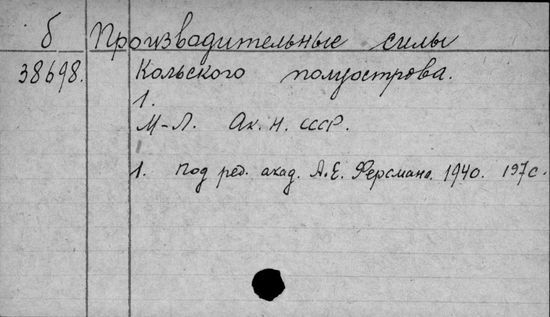 б Производительные силы
38698. Кольского полуострова.
1.
М-Л. Ак. Н. СССР.
1. Под ред. акад. А.Е. Ферсмана. 1940. 197с.